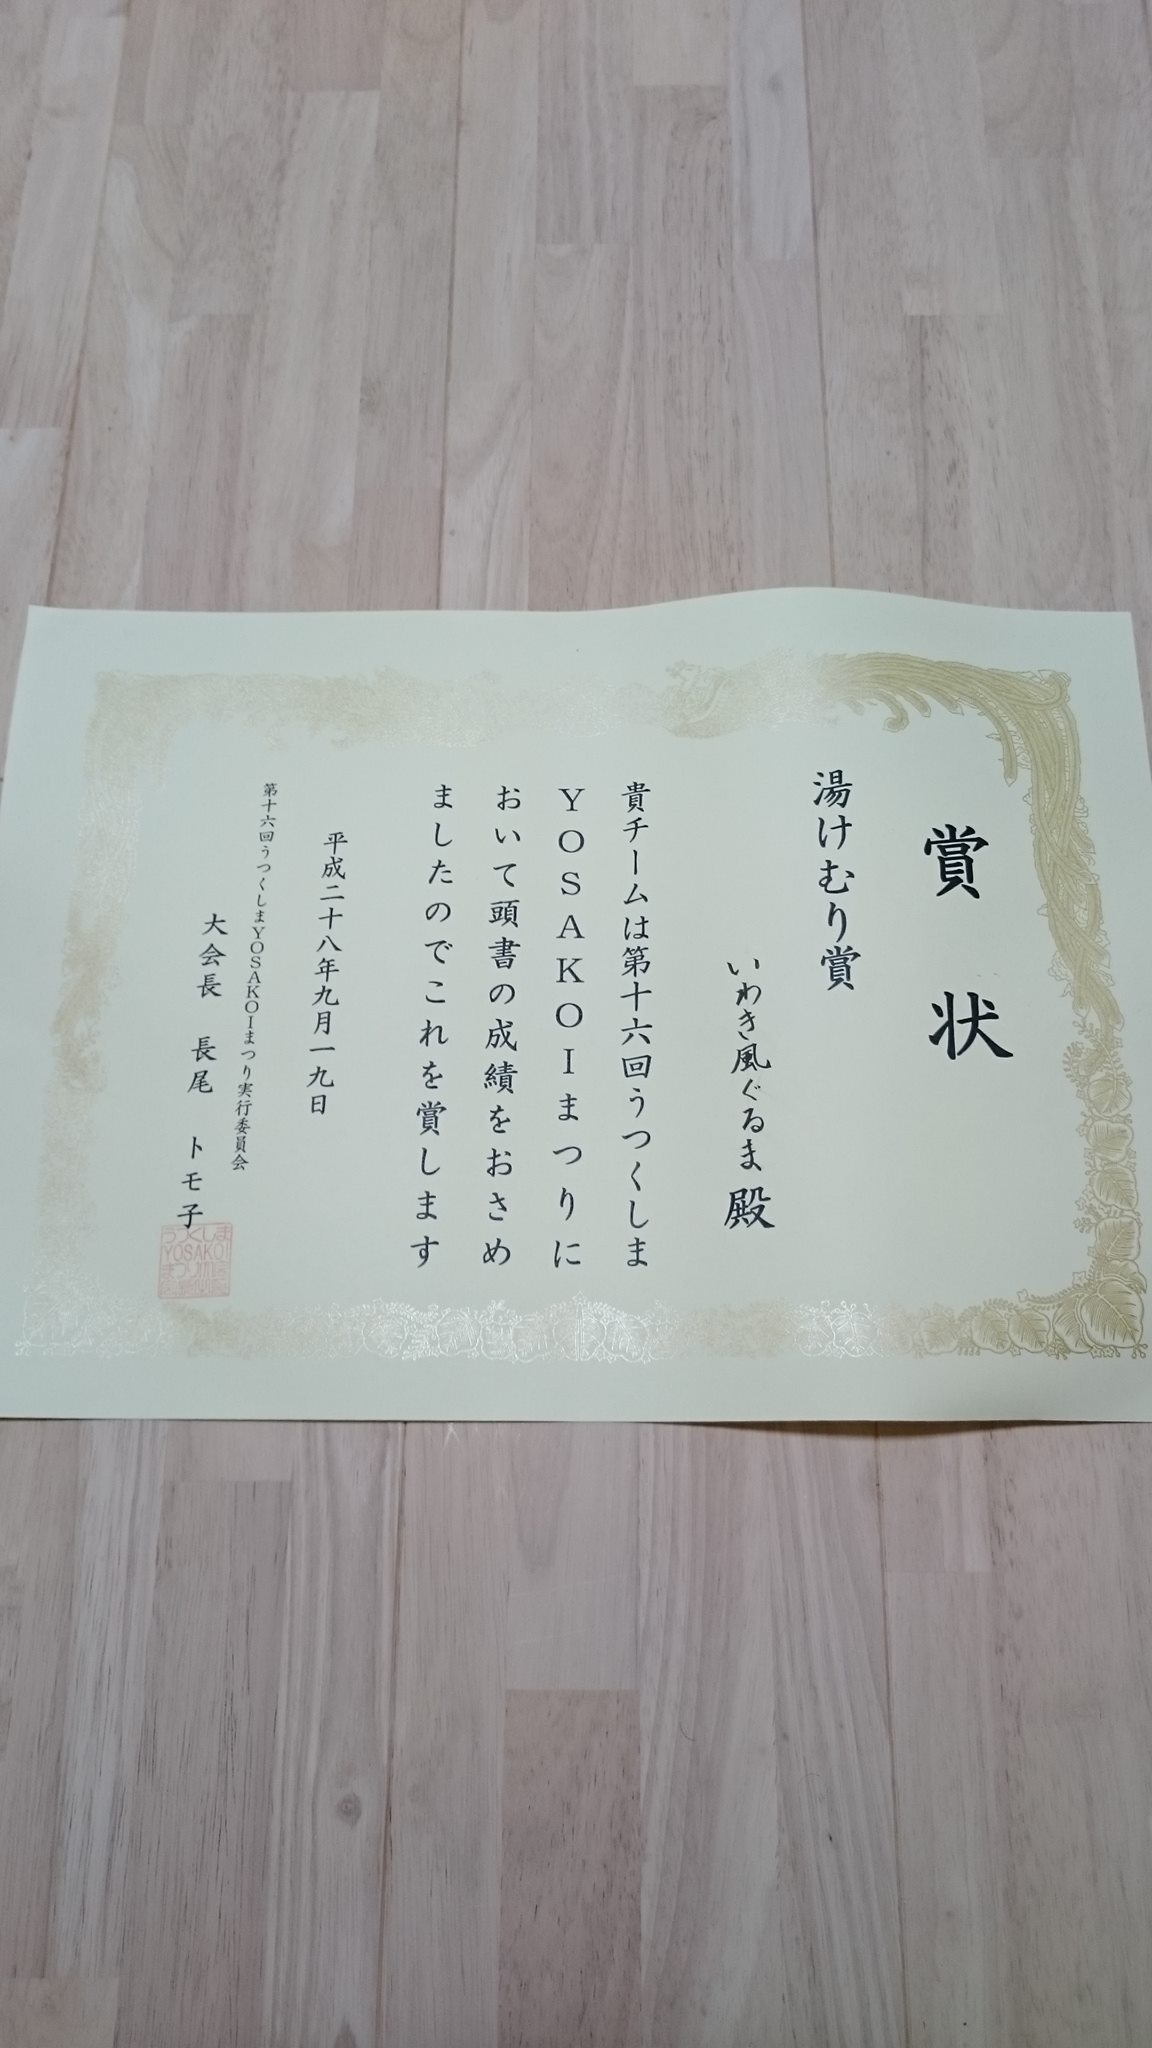 賞状
湯けむり賞
いわき風ぐるま殿
貴チームは第十六回うつくしま
YOSAKOIまつりに
おいて頭書の成績をおさめ
ましたのでこれを賞します
平成二十八年九月一九日
第十六回うつくしまYOSAKOIまつり実行委員会
大会長 長尾 トモ子
うつくしま
YOSAKOI